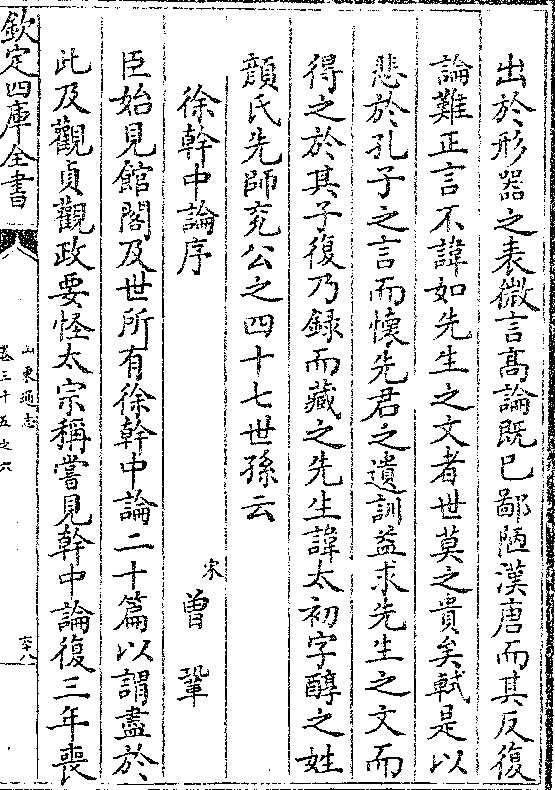 出於形器之表微言高論既已鄙陋漢唐而其反復
論難正言不諱如先生之文者世莫之貴矣軾是以
悲於孔子之言而懷先君之遺訓益求先生之文而
得之於其子復乃録而藏之先生諱太初字醇之姓
顔氏先師兖公之四十七世孫云
徐幹中論序
宋 曽鞏
臣始見館閣及世所有徐幹中論二十篇以謂盡於
此及觀貞觀政要怪太宗稱嘗見幹中論復三年喪
欽定四庫全書
山東通志
卷三十五之六
六十八